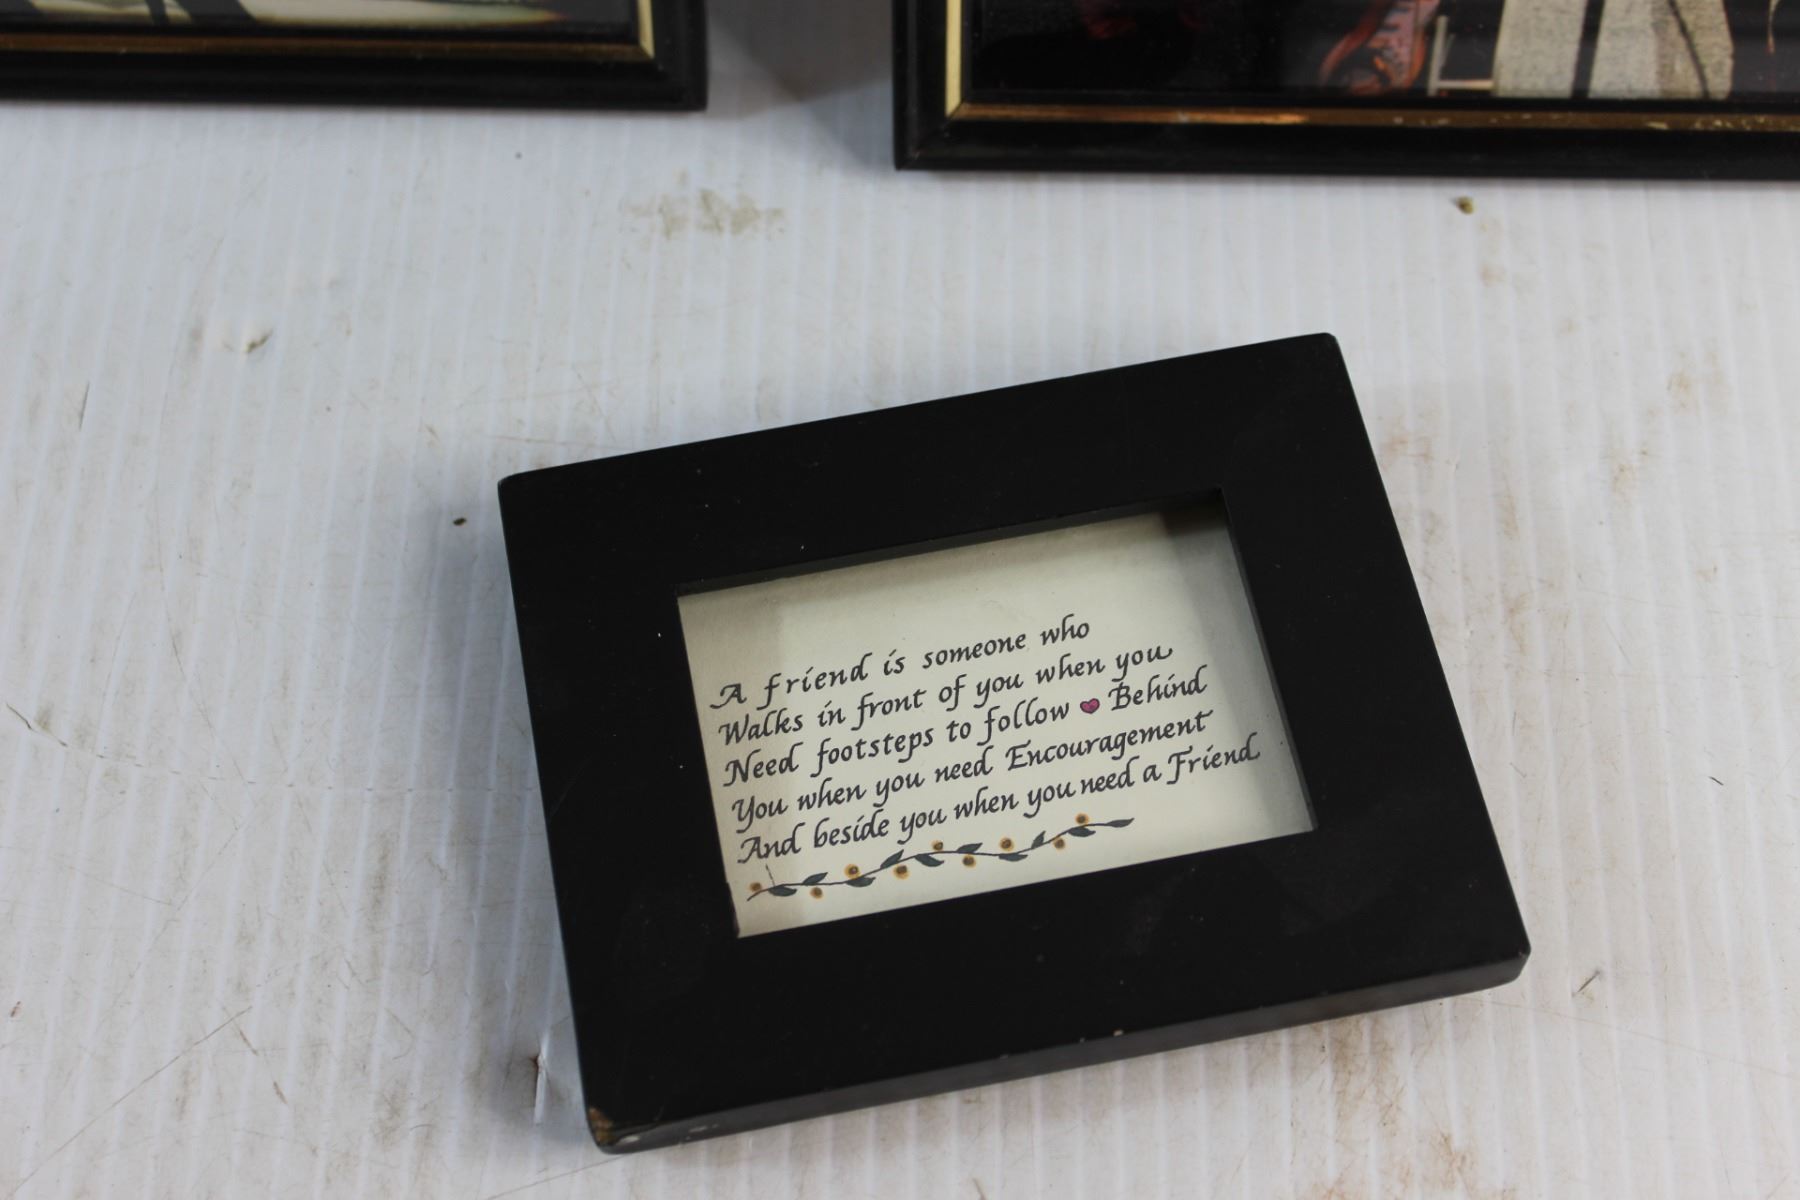 A friend is someone who
Walks in front of you when you
Need footsteps to follow ♥ Behind
You when you need Encouragement
And beside you when you need a Friend